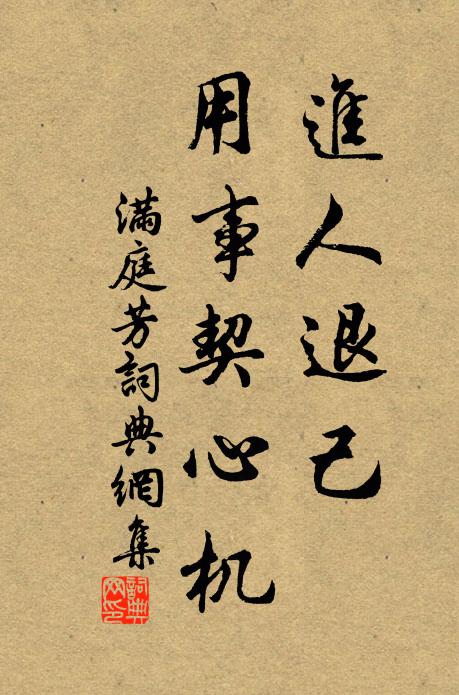 進人退己
用事契心机
滿庭芳詞典網集
詞典
网印